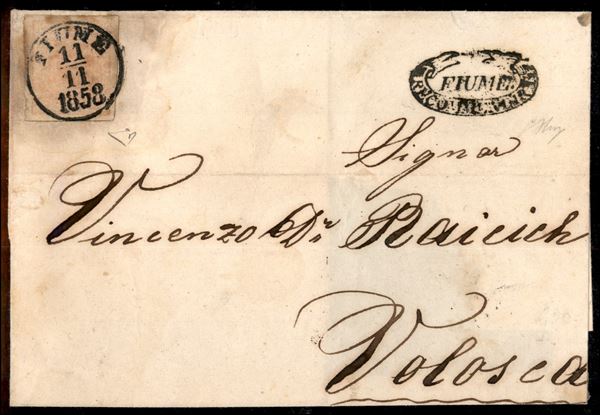 FIUME
11
11
1858
FIUME.
Signor
Vincenzo Dr. Raicich
Volosca